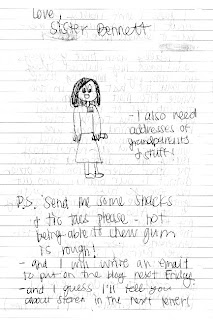 Love,
Sister Bennett
- I also need
addresses of
grandparents
& stuff!
P.S. Send me some snacks
& tic tacs please - not
being able to chew gum
is rough!
- and I will write an email
to put on the blog next Friday.
- and I guess I'll tell you
about stores in the next letters!